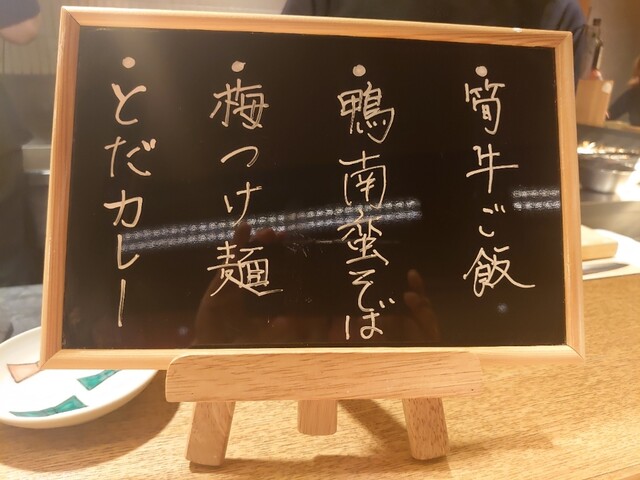 ・筍牛ご飯
・鴨南蛮そば
・梅つけ麺
・とだカレー